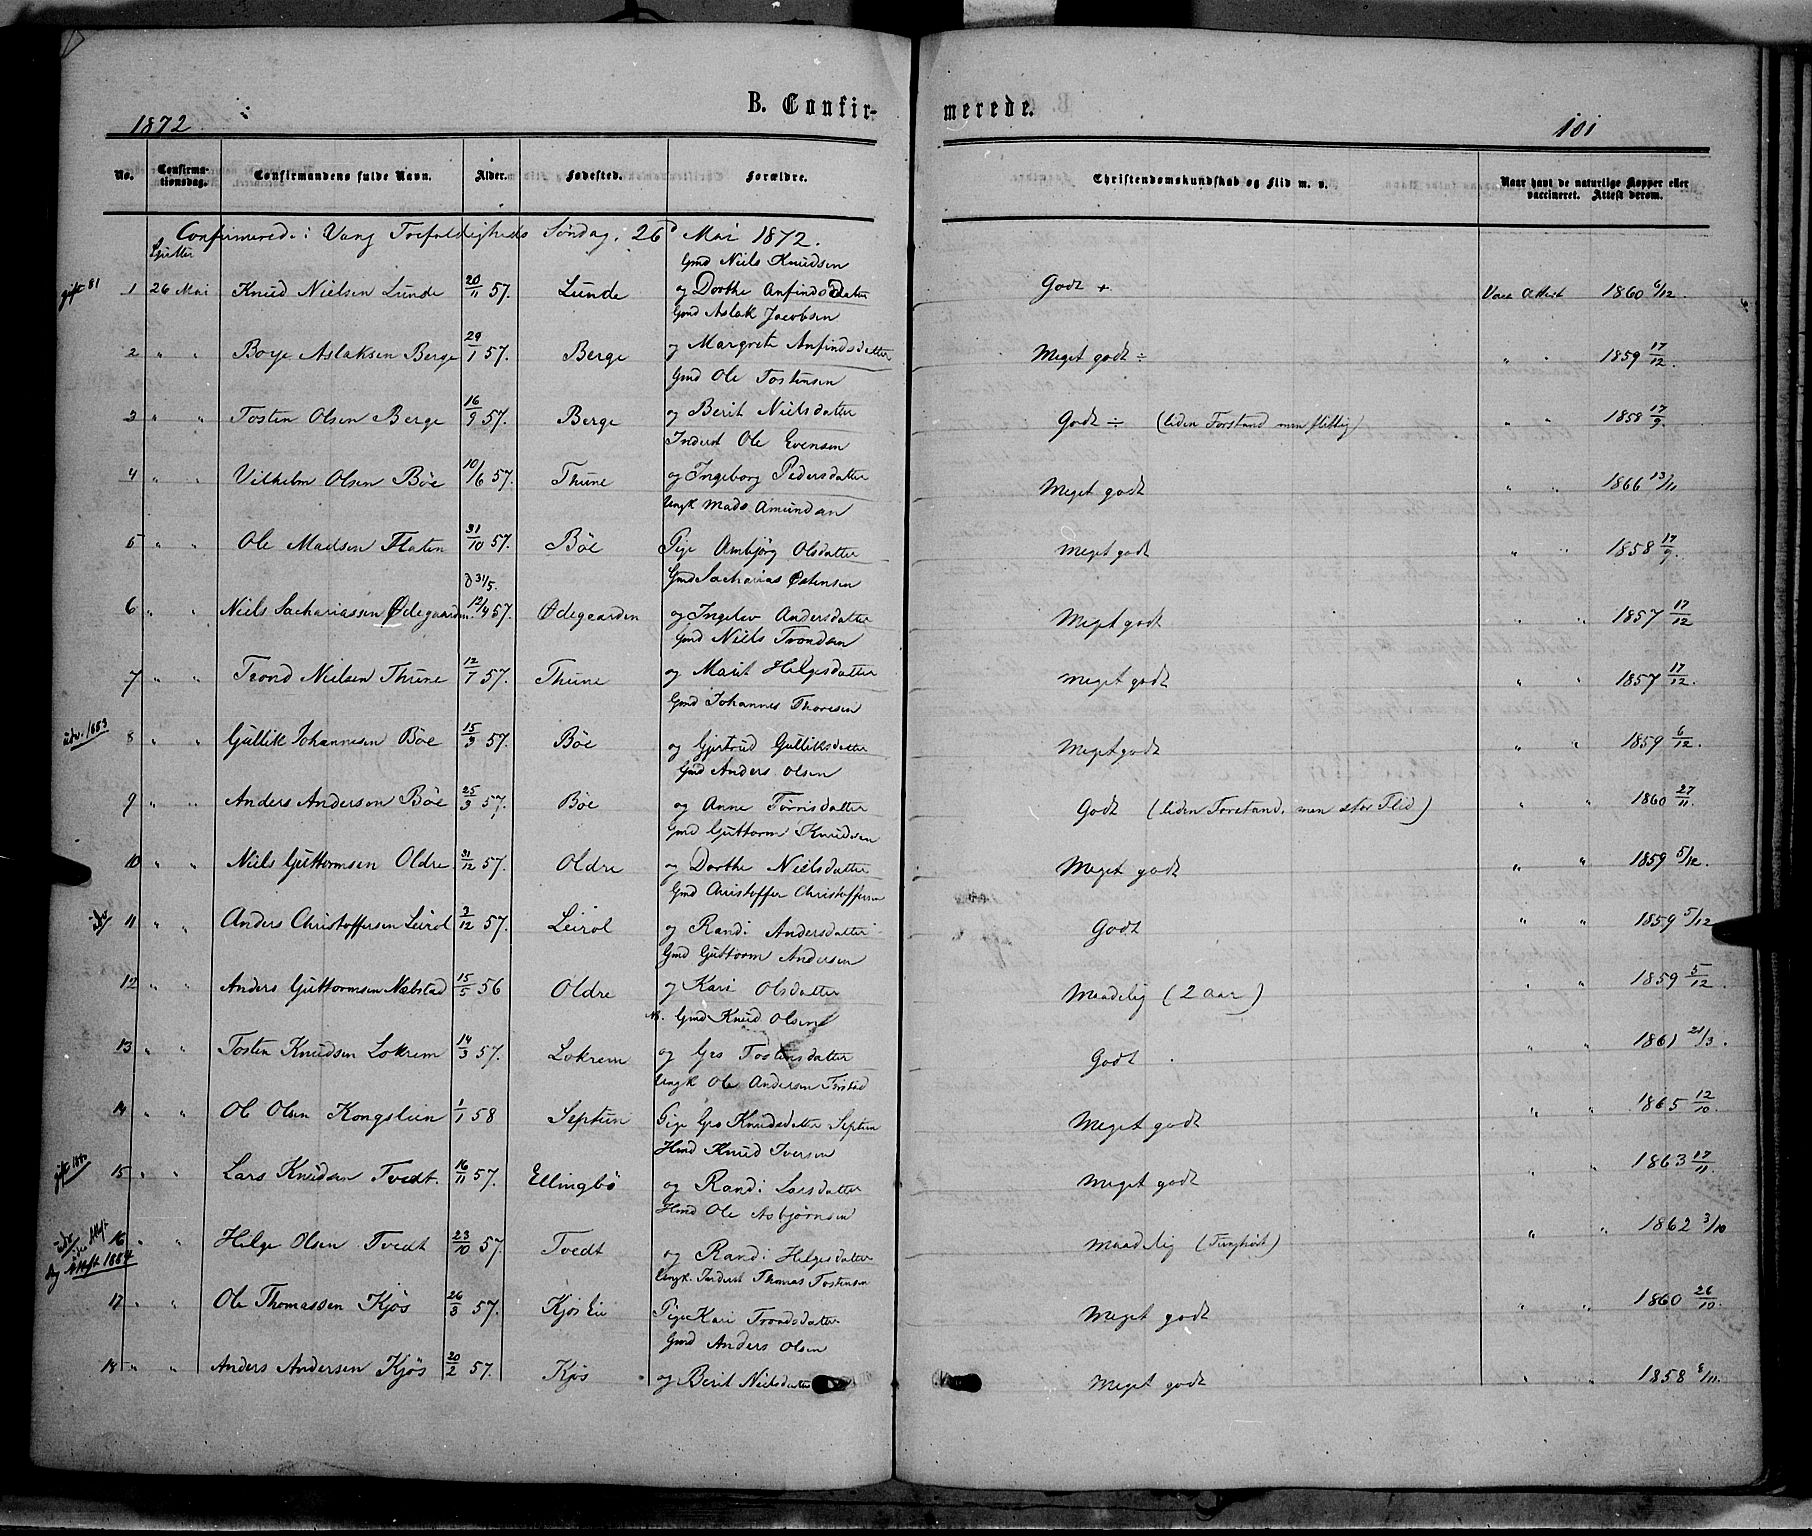 1872.
B. Confir-
merede.
101
No.
Confirma-
tionsdag.
Confirmandens fulde Navn.
Alder.
Fødested.
Forældre.
Christendomskundskab og Flid m. v.
Naar havt de naturlige Kopper eller
vaccineret. Attest derom.
Confirmerede i Vang Trefoldigheds Søndag, 26 Mai 1872.
Gutter
Gmd Niels Knudsen
gift 81 1 26 Mai Knud Nielsen Lunde 20/11 57. Lunde og Dorthe Anfindsdatter Godt + Vacc Attest 1860 6/12.
Gmd Aslak Jacobsen
2 " " Boye Aslaksen Berge 29/1 57. Berge og Margrete Anfindsdatter Meget godt ÷ " " 1859 17/12.
Gmd Ole Tostensen
3 " " Tosten Olsen Berge 16/9 57. Berge og Berit Nielsdatter Godt ÷ (liden Forstand men flittig) " " 1858 17/9.
Inderst Ole Evensen
4 " " Vilhelm Olsen Böe 10/6 57. Thune og Ingeborg Pedersdatter Meget godt " " 1866 13/11
Ungk Mads Amundsen
5 " " Ole Madsen Flaten 31/10 57. Böe Pige Ambjörg Olsdatter Meget godt " " 1858 17/9.
d 31/5. Gmd Sacharias Østensen
6 " " Niels Sachariassen Ødegaarden 12/4 57. Ødegaarden og Ingelev Andersdatter Meget godt " " 1857 17/12
Gmd Niels Trondsen
7 " " Trond Nielsen Thune 12/7 57. Thune og Marit Helgesdatter Meget godt " " 1857 17/12.
Gmd Johannes Thoresen
udv. 1883 8 " " Gullik Johannesen Böe 15/3 57. Böe og Gjertrud Gulliksdatter Meget godt " " 1859 6/12.
Gmd Anders Olsen
9 " " Anders Andersen Böe 25/3 57. Böe og Anne Torrisdatter Godt (liden Forstand, men stor Flid) " " 1860 27/11.
Gmd Guttorm Knudsen
10 " " Niels Guttormsen Oldre 31/12 57. Oldre og Dorthe Nielsdatter Meget godt " " 1859 5/12.
Gmd Christoffer Christoffersen
udv 11 " " Anders Christoffersen Leirol 2/12 57. Leirol og Randi Andersdatter Godt " " 1859 5/12
Gmd Guttorm Andersen
12 " " Anders Guttormsen Nebstad 15/5 56 Oldre og Kari Olsdatter Maadelig (2 aar) " " 1859 5/12
Gmd Knud Olsen
13 " " Tosten Knudsen Lokrem 14/3 57. Lokrem og Gro Tostensdatter Godt " " 1861 21/3.
Ungk Ole Andersen
14 " " Ole Olsen Kongslien 1/1 58 Septun Pige Gro Knudsdatter Septun Meget godt " " 1865 12/10.
Hmd Knud Iversen
gift 1880 15 " " Lars Knudsen Tvedt. 16/11 57. Ellingbö og Randi Larsdatter Meget godt " " 1863 17/11.
Hmd Ole Asbjørnsen
udv 16 " " Helge Olsen Tvedt 23/10 57. Tvedt og Randi Helgesdatter Maadelig (Tunghört) " " 1862 3/10
Attest 1884 Ungk. Inderst Thomas Tostensen
17 " " Ole Thomassen Kjös 26/3 57. Kjös Eie Pige Kari Trondsdatter Meget godt " " 1860 26/10.
Gmd Anders Olsen
18 " " Anders Andersen Kjös 20/2 57. Kjös og Berit Nielsdatter Meget godt " " 1858 8/11.